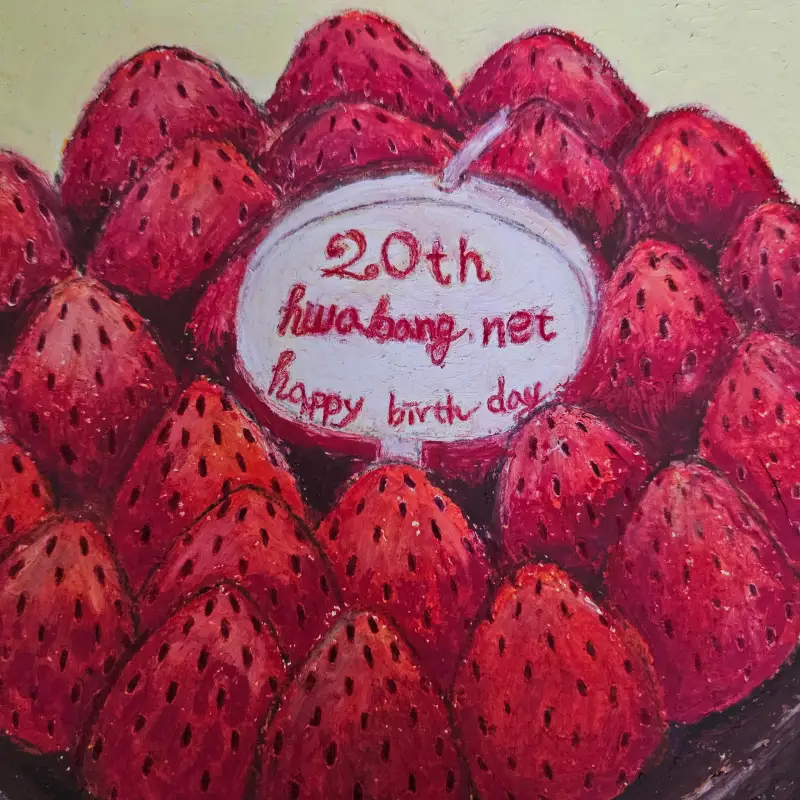 20th
hwabang.net
happy birth day